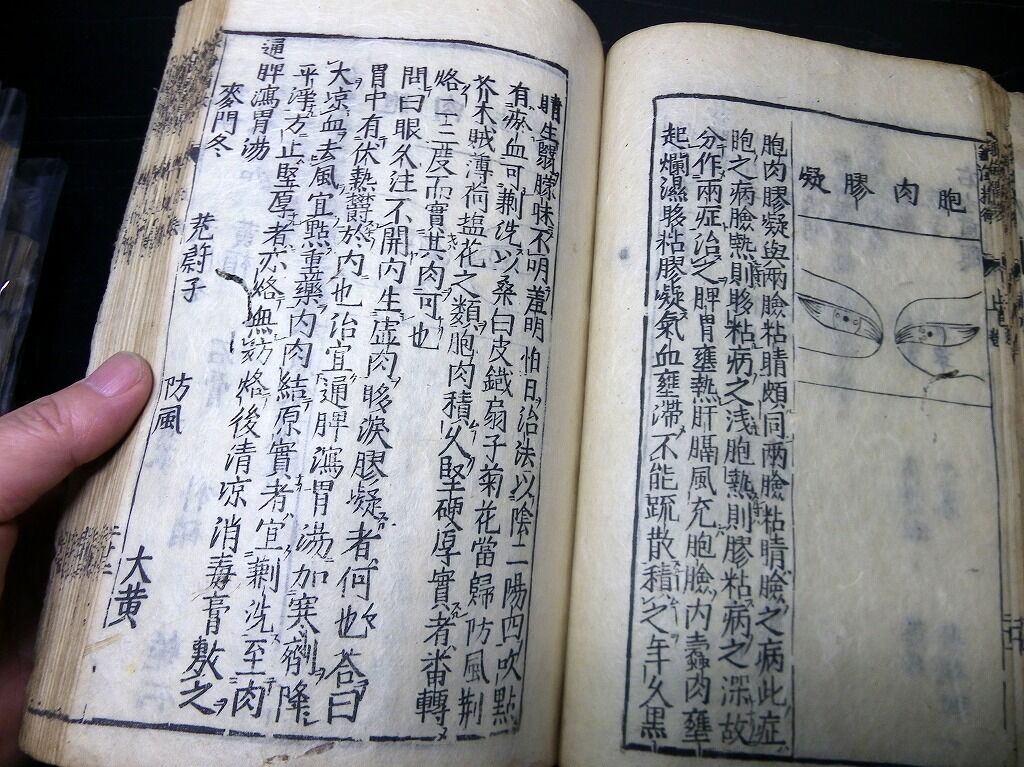 胞肉膠凝
胞肉膠凝與兩臉粘睛頗同兩臉粘睛臉之病此症
胞之病臉熱則眵粘病之浅胞熱則膠粘病之深故
分作兩症治之脾胃壅熱肝膈風充胞臉内蠹肉壅
起爛濕眵粘膠凝氣血壅滞不能踈散積之年久黒
睛生翳朦昧不明羞明怕日治法以陰二陽四吹點
有瘀血可劆洗以桑白皮鐵扇子菊花當歸防風荆
芥木賊薄荷塩花之類胞肉積久堅硬厚實者番轉
烙二三度而實其肉可也
問曰眼久注不開内生虚肉眵淚膠凝者何也荅曰
胃中有伏熱欝於内也治宜通脾瀉胃湯加寒劑降
大凉血去風宜點重藥内肉結原實者宜劆洗至肉
平淨方止堅厚者亦烙無妨烙後清凉消毒膏敷之
通脾瀉胃湯
麥門冬 茺蔚子 防風 大黄